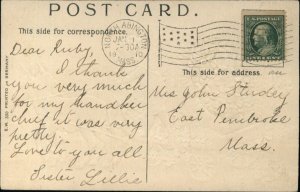 POST CARD.
This side for correspondence.
NORTH ABINGTON
JAN 1
7-30A
MASS.
This side for address
Dear Ruby,
I thank
you very much
for my handker
chief it was very
pretty.
Love to you all
Sister Lillie
Mrs John
East Pembroke
Mass.
PRINTED IN GERMANY